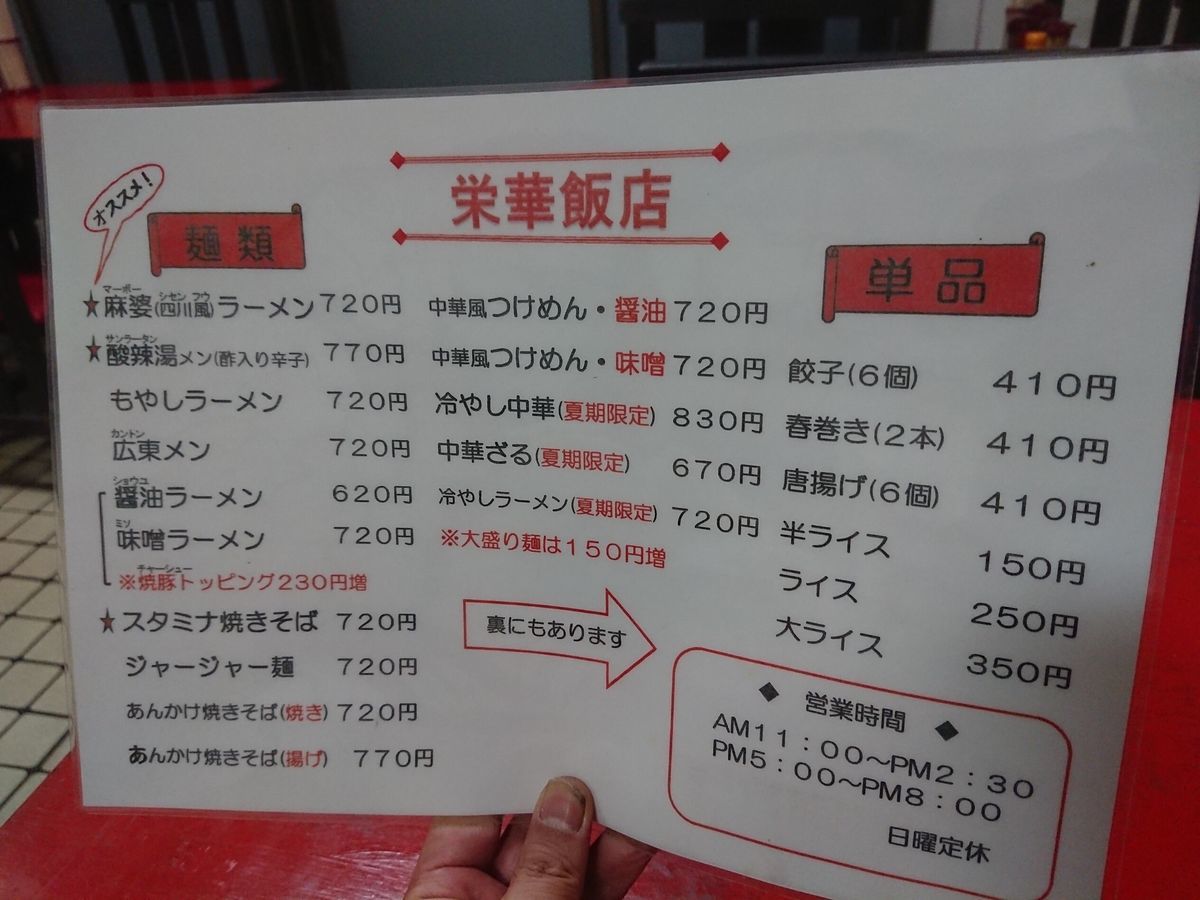 栄華飯店
オススメ!
麺類
★麻婆(四川風)ラーメン 720円
マーボー シセン フウ
★酸辣湯メン(酢入り辛子) 770円
サンラータン
もやしラーメン 720円
広東メン 720円
カントン
醤油ラーメン 620円
ショウユ
味噌ラーメン 720円
ミソ
※焼豚トッピング230円増
チャーシュー
★スタミナ焼きそば 720円
ジャージャー麺 720円
あんかけ焼きそば(焼き) 720円
あんかけ焼きそば(揚げ) 770円
中華風つけめん・醤油 720円
中華風つけめん・味噌 720円
冷やし中華(夏期限定) 830円
中華ざる(夏期限定) 670円
冷やしラーメン(夏期限定) 720円
※大盛り麺は150円増
裏にもあります
単品
餃子(6個) 410円
春巻き(2本) 410円
唐揚げ(6個) 410円
半ライス 150円
ライス 250円
大ライス 350円
◆ 営業時間 ◆
AM11:00～PM2:30
PM5:00～PM8:00
日曜定休